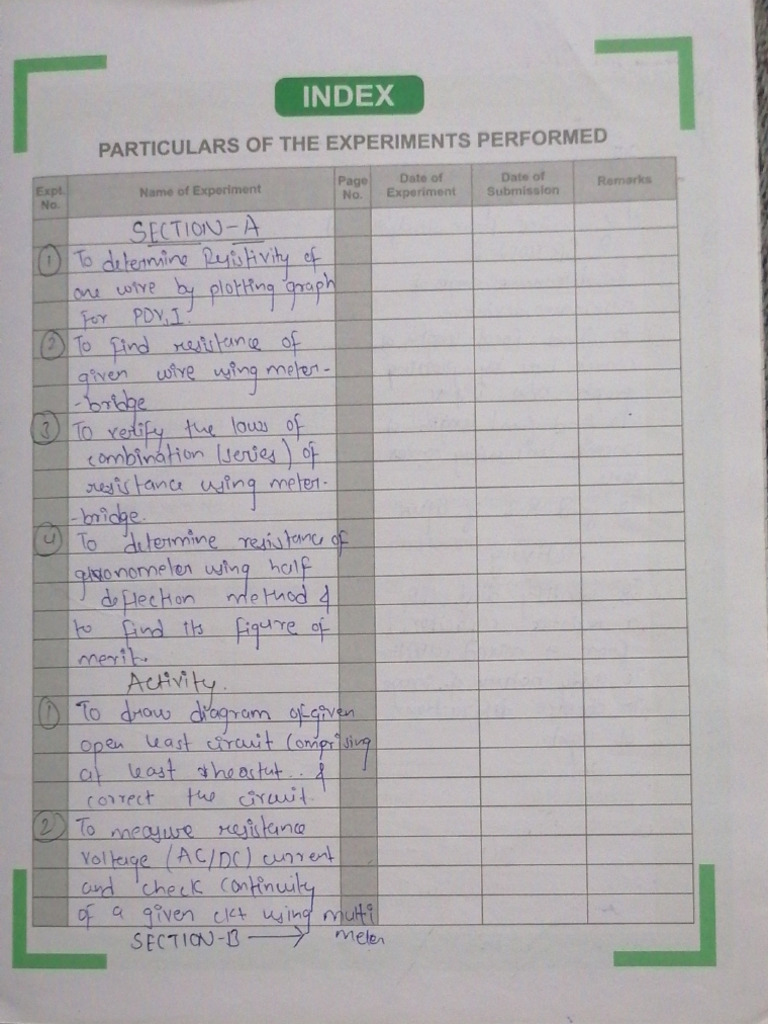 INDEX
PARTICULARS OF THE EXPERIMENTS PERFORMED
Expt. No. Name of Experiment Page No. Date of Experiment Date of Submission Remarks
SECTION-A
① To determine Resistivity of
one wire by plotting graph
for PDV, I.
② To find resistance of
given wire using meter-
-bridge
③ To verify the laws of
combination (series) of
resistance using meter-
-bridge.
④ To determine resistance of
using half
deflection method &
to find its figure of
merit.
Activity.
① To draw diagram of given
open least circuit comprising
at least rheostat.. &
correct the circuit.
② To measure resistance
voltage (AC/DC) current
and check continuity
of a given ckt using multi
meter
SECTION-B →